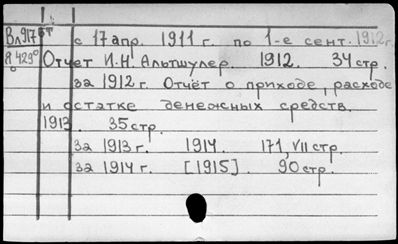 Вл917 бт с 17 апр. 1911 г. по 1-е сент. 1912г.
Я 429° Отчет И.Н. Альтшулер. 1912. 34 стр.
за 1912 г. Отчёт о приходе, расходе
и остатке денежных средств.
1913. 35 стр.
за 1913 г. 1914. 171, VII стр.
за 1914 г. [1915]. 90 стр.